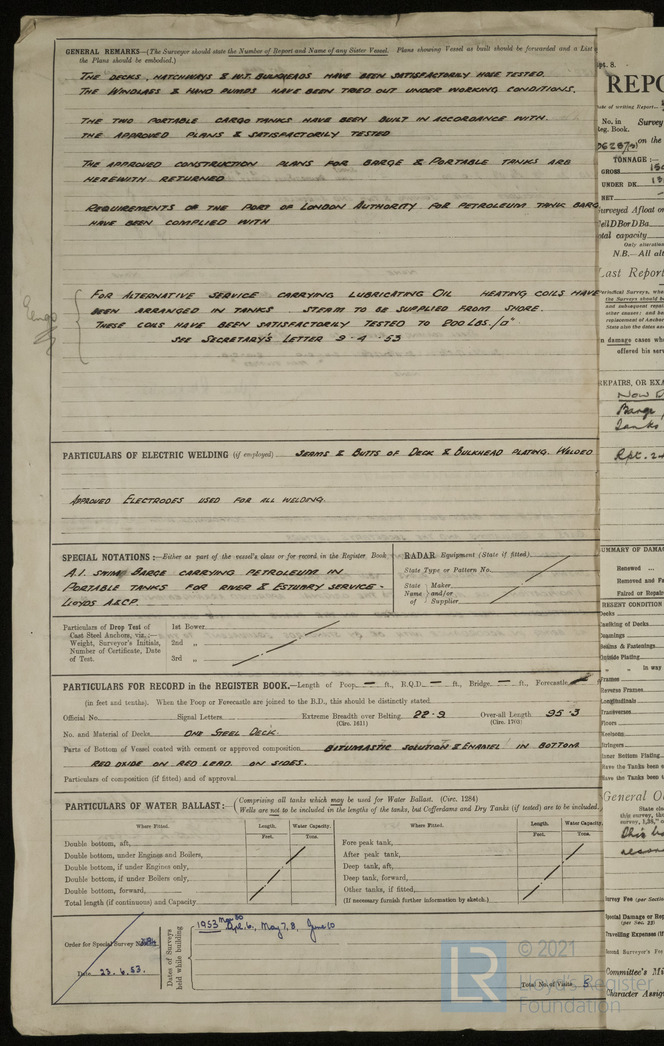 GENERAL REMARKS—(The Surveyor should state the Number of Report and Name of any Sister Vessel. Plans showing Vessel as built should be forwarded and a List
the Plans should be embodied.)
THE DECKS, HATCHWAYS & W.T. BULKHEADS HAVE BEEN SATISFACTORILY HOSE TESTED.
THE WINDLASS & HAND PUMPS HAVE BEEN TRIED OUT UNDER WORKING CONDITIONS.
THE TWO PORTABLE CARGO TANKS HAVE BEEN BUILT IN ACCORDANCE WITH.
THE APPROVED PLANS & SATISFACTORILY TESTED
THE APPROVED CONSTRUCTION PLANS FOR BARGE & PORTABLE TANKS ARE
HEREWITH RETURNED
REQUIREMENTS OF THE PORT OF LONDON AUTHORITY FOR PETROLEUM TANK BARG
HAVE BEEN COMPLIED WITH
FOR ALTERNATIVE SERVICE CARRYING LUBRICATING OIL HEATING COILS HAVE
BEEN ARRANGED IN TANKS STEAM TO BE SUPPLIED FROM SHORE.
THESE COILS HAVE BEEN SATISFACTORILY TESTED TO 200 LBS./□"
SEE SECRETARY'S LETTER 9-4-53
PARTICULARS OF ELECTRIC WELDING (if employed) SEAMS & BUTTS OF DECK & BULKHEAD PLATING. WELDED
APPROVED ELECTRODES USED FOR ALL WELDING.
SPECIAL NOTATIONS:—Either as part of the vessel's class or for record in the Register Book
A.I. SWIM BARGE CARRYING PETROLEUM IN
PORTABLE TANKS FOR RIVER & ESTUARY SERVICE-
LLOYDS A&CP.
RADAR Equipment (State if fitted)
State Type or Pattern No.
State Name of { Maker and/or Supplier
Particulars of Drop Test of
Cast Steel Anchors, viz.:—
Weight, Surveyor's Initials,
Number of Certificate, Date
of Test.
1st Bower
2nd „
3rd „
PARTICULARS FOR RECORD in the REGISTER BOOK.—Length of Poop — ft., R.Q.D. — ft., Bridge — ft., Forecastle — ft
(in feet and tenths). When the Poop or Forecastle are joined to the B.D., this should be distinctly stated
Official No. Signal Letters Extreme Breadth over Belting 22.9 Over-all Length 95.3
(Circ. 1611) (Circ. 1703)
No. and Material of Decks ONE STEEL DECK.
Parts of Bottom of Vessel coated with cement or approved composition BITUMASTIC SOLUTION & ENAMEL IN BOTTOM
RED OXIDE ON RED LEAD ON SIDES.
Particulars of composition (if fitted) and of approval
PARTICULARS OF WATER BALLAST:— (Comprising all tanks which may be used for Water Ballast. (Circ. 1284)
Wells are not to be included in the lengths of the tanks, but Cofferdams and Dry Tanks (if tested) are to be included.
Where Fitted. Length. Water Capacity. Where Fitted. Length. Water Capacity
Feet. Tons. Feet. Tons.
Double bottom, aft,
Double bottom, under Engines and Boilers,
Double bottom, if under Engines only,
Double bottom, if under Boilers only,
Double bottom, forward,
Total length (if continuous) and Capacity
Fore peak tank,
After peak tank,
Deep tank, aft,
Deep tank, forward,
Other tanks, if fitted,
(If necessary furnish further information by sketch.)
Order for Special Survey No.
Date 23.6.53.
Dates of Surveys held while building
1953 Mar 30 Apl. 6, May 7, 8, June 10
Total No. of Visits 5
pt. 8.
REPO
ate of writing Report
No. in Survey
eg. Book.
on the
TONNAGE :—
GROSS
UNDER DK.
NET
urveyed Afloat or
ellDBorDBa
tal capacity
Only alteration
N.B.—All alt
Last Report
the Surveys should be
and subsequent
replacement of Anchor
State also the dates
n damage cases wh
offered his serv
REPAIRS, OR EXA
Now
Barge
tanks
Rpt. 24
UMMARY OF DAMA
Renewed ...
Removed and Fa
Faired or Repair
RESENT CONDITION
Decks
Caulking of Decks
Coamings
Beams & Fastenings
Outside Plating
„ „ in way
Frames
Reverse Frames
Longitudinals
Transverses
Floors
Keelsons
Stringers
Inner Bottom Plating
Have the Tanks been
Have the Tanks been
General O
State
this survey, the
survey, 1,38,"
This
Survey Fee (per Section
Special Damage or Rep
(per Sec. 23)
Travelling Expenses (if
Second Surveyor's Fee
Committee's Mi
Character Assign
LR
© 2021
Lloyd's Register
Foundation